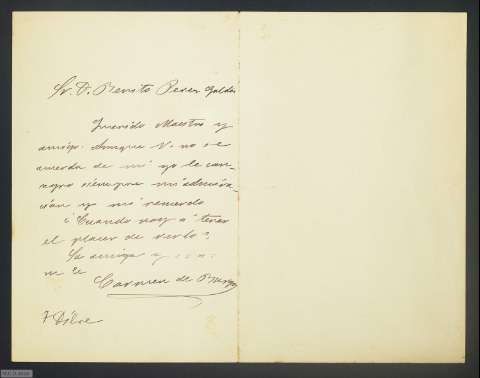 Sr. D. Benito Perez Galdós
Querido Maestro y
amigo: Aunque V. no se
acuerda de mi yo le con-
sagro siempre mi admira-
ción y mi recuerdo
¿Cuando voy á tener
el placer de verlo?
Su amiga y
Carmen de Burgos
7 Dibre